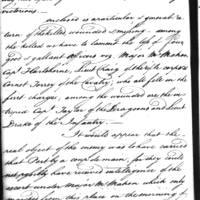 victorious.
enclosed is a particular & general re-
turn of the killed wounded & missing - among
the killed we have to lament the loss of four
good & gallant officers viz. Major McMahon
Capt Hartshorne, Lieut Craig of the rifle corps &
Cornet Torrey of the Cavalry, who all fell in the
first charge, among the wounded are the in-
trepid Capt Taylor of the Dragoons and Lieut
Drake of the Infantry.
It would appear that the
real object of the enemy was to have carried
that Post by a coup de main, for they could
not possibly have received intelligence of the
escort under Major McMahon which only
marched from this place on the morning of